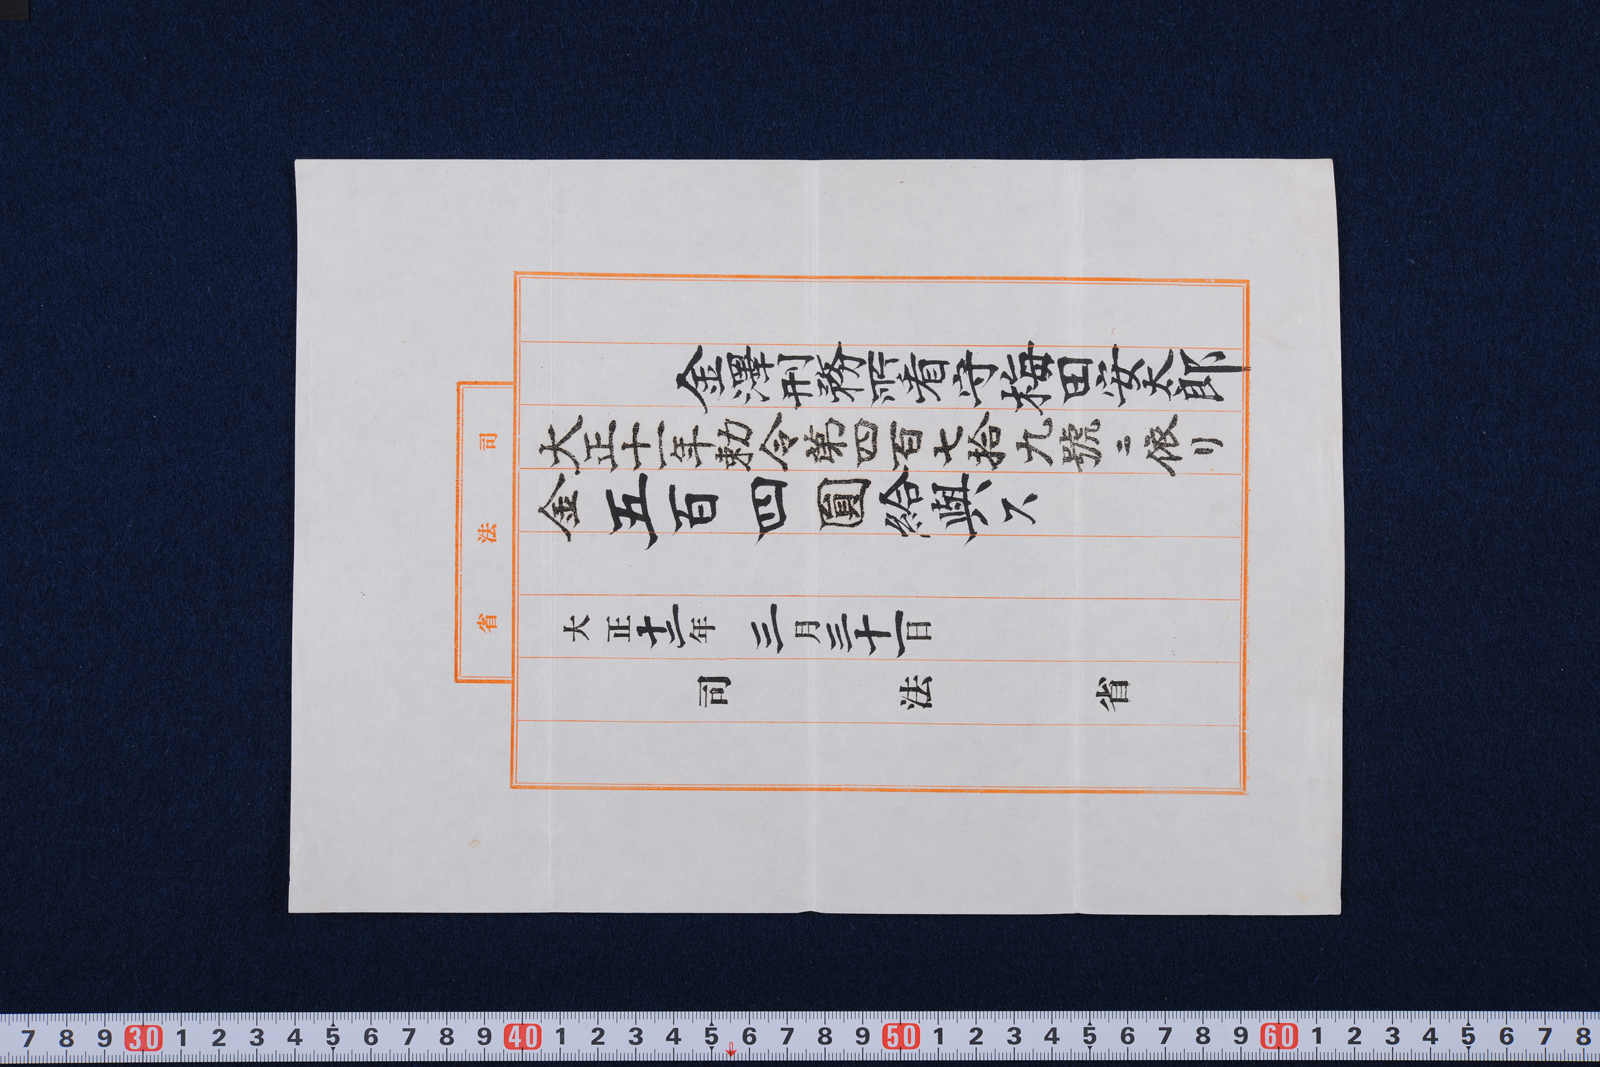 金澤刑務所看守梅田安太郎
大正十一年勅令第四百七拾九號ニ依リ
金五百四圓給與ス
大正十二年三月三十一日
司法省
司法省
7 8 9 30 1 2 3 4 5 6 7 8 9 40 1 2 3 4 5 6 7 8 9 50 1 2 3 4 5 6 7 8 9 60 1 2 3 4 5 6 7 8